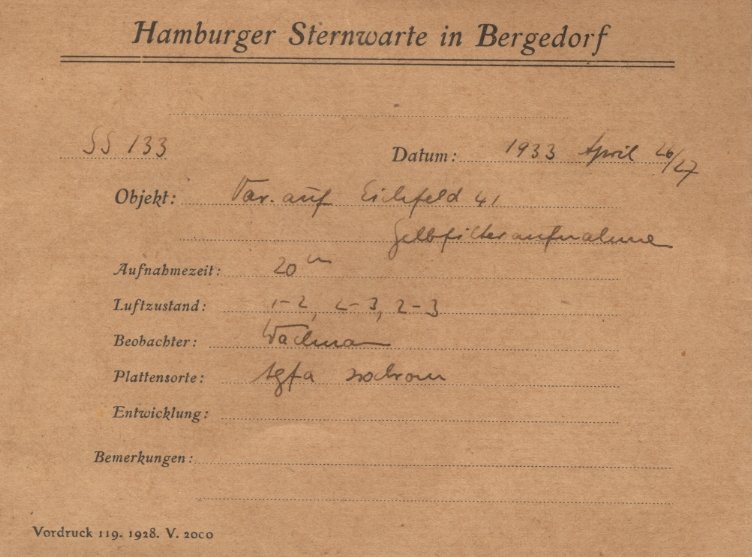 Hamburger Sternwarte in Bergedorf
SS 133 Datum: 1933 April 26/27
Objekt: Var. auf Eichfeld 41
Gelbfilteraufnahme
Aufnahmezeit: 20m
Luftzustand: 1-2, 2-3, 2-3
Beobachter: Wachmann
Plattensorte: Agfa Isochrom
Entwicklung:
Bemerkungen:
Vordruck 119. 1928. V. 2000